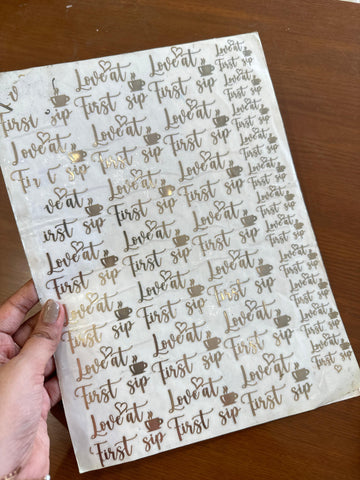 First sip
Love at
Fir t sip
ve at
irst sip
Love at
First sip
Love at
First sip
Love at
First sip
Love at
First sip
Love at
First sip
Love at
First sip
Love at
First sip
Love at
First sip
Love at
First sip
Love at
First sip
Love at
First sip
Love at
First sip
Love at
First sip
Love at
First sip
Love at
First sip
Love at
First sip
Love at
First sip
Love at
First sip
Love at
First sip
Love at
First sip
Love at
First sip
Love at
First sip
Love at
First sip
Love at
First sip
Love at
First sip
Love at
First sip
Love at
First sip
Love at
First sip
Love at
First sip
Love at
First sip